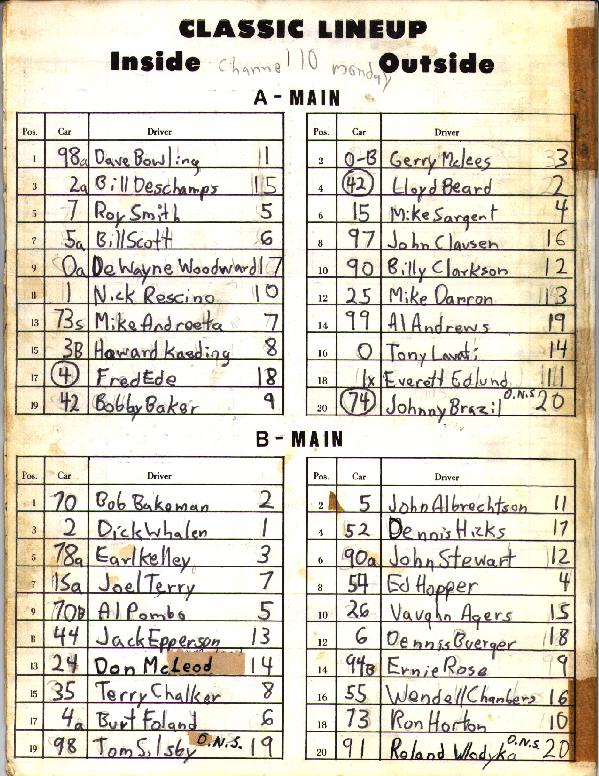 CLASSIC LINEUP
Inside Channel 10 monday Outside
A - MAIN
Pos. Car Driver
1 98a Dave Bowling 1
3 2a Bill Deschamps 15
5 7 Roy Smith 5
7 5a Bill Scott 6
9 0a De Wayne Woodward 17
11 1 Nick Rescino 10
13 73s Mike Andreeta 7
15 3B Howard Kaeding 8
17 4 Fred Ede 18
19 42 Bobby Baker 9
Pos. Car Driver
2 0-B Gerry Mclees 3
4 42 Lloyd Beard 2
6 15 Mike Sargent 4
8 97 John Clausen 16
10 90 Billy Clarkson 12
12 25 Mike Damron 13
14 99 Al Andrews 19
16 0 Tony Lavati 14
18 1x Everett Edlund 11
20 74 Johnny Brazil O.N.S 20
B - MAIN
Pos. Car Driver
1 70 Bob Bakeman 2
3 2 Dick Whalen 1
5 78a Earl Kelley 3
7 15a Joel Terry 7
9 70B Al Pombo 5
11 44 Jack Epperson 13
13 24 Don McLeod 14
15 35 Terry Chalker 8
17 4a Burt Foland 6
19 98 Tom Silsby O.N.S. 19
Pos. Car Driver
2 5 John Albrechtson 11
4 52 Dennis Hicks 17
6 90a John Stewart 12
8 54 Ed Hopper 4
10 26 Vaughn Agers 15
12 6 Dennis Buerger 18
14 94B Ernie Rose 9
16 55 Wendell Chambers 16
18 73 Ron Horton 10
20 91 Roland Wlodyka O.N.S. 20